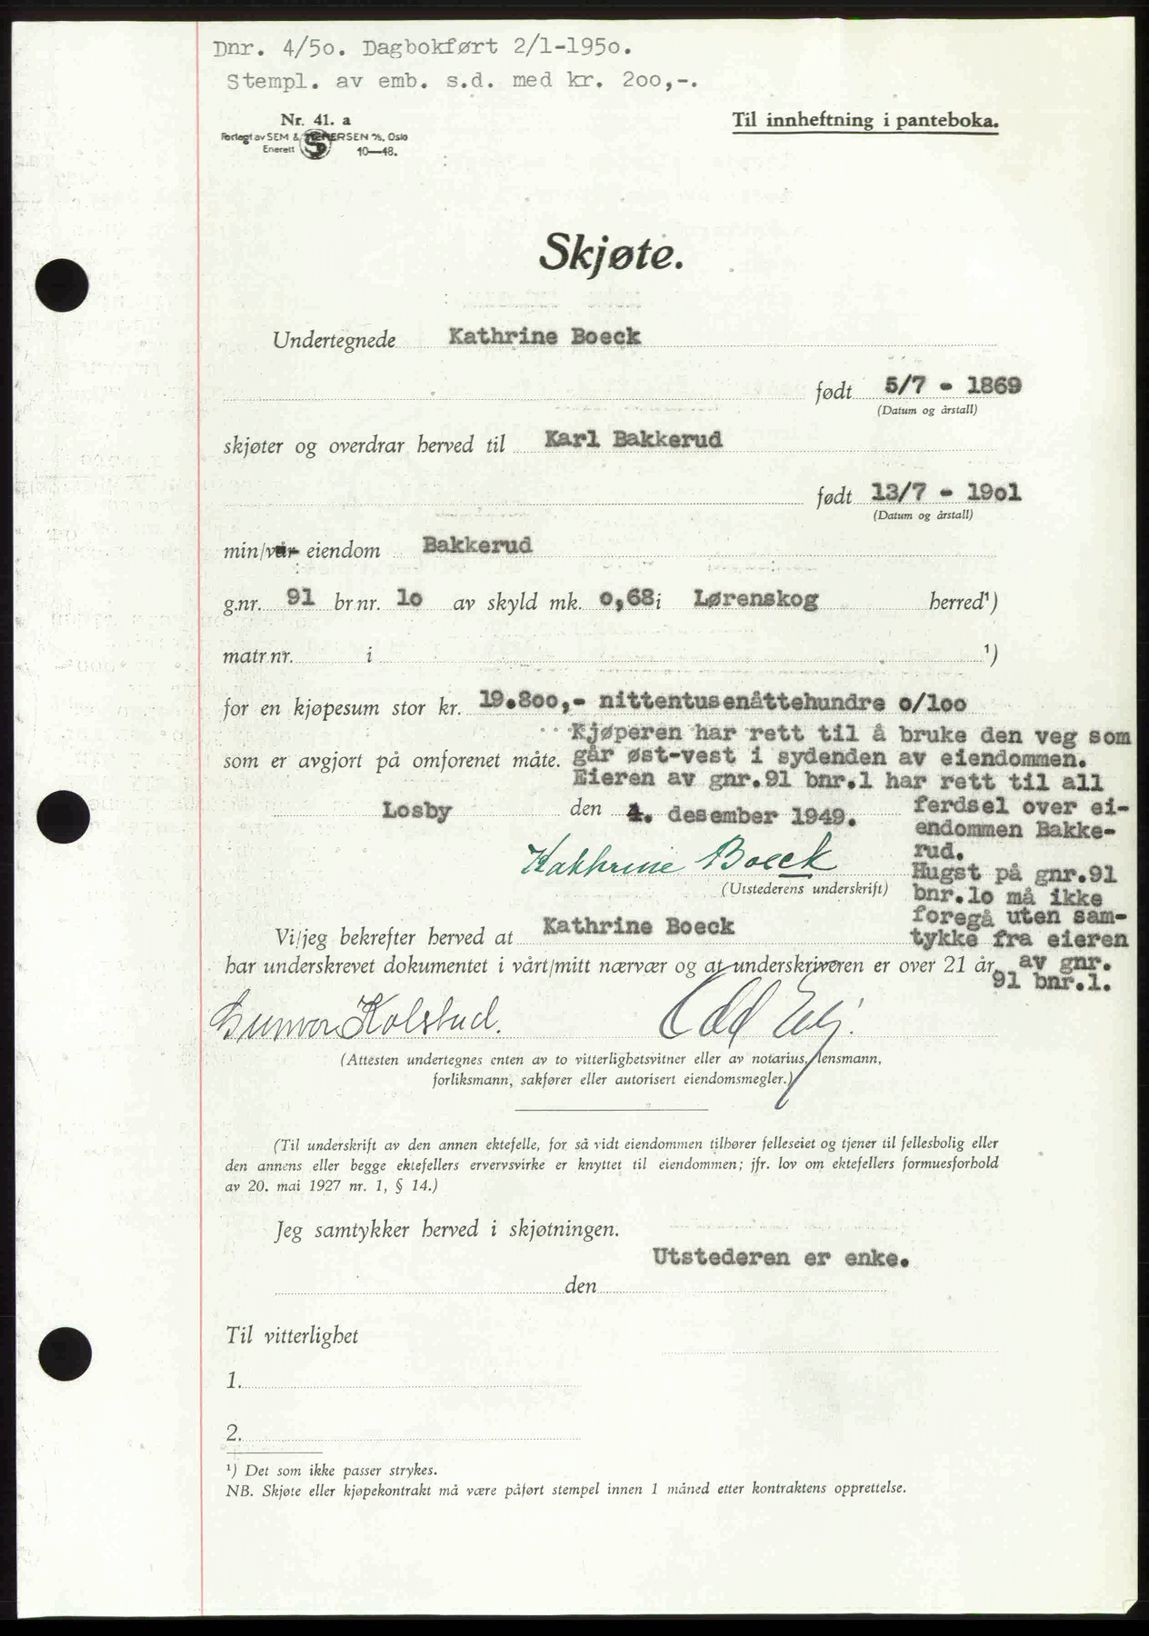 Dnr. 4/5o. Dagbokført 2/1-195o.
Stempl. av emb. s.d. med kr. 2oo,-.
Nr. 41. a
Forlagt av SEM & STENERSEN A/S, Oslo
Enerett 10—48.
Til innheftning i panteboka.
Skjøte.
Undertegnede Kathrine Boeck
født 5/7 - 1869
(Datum og årstall)
skjøter og overdrar herved til Karl Bakkerud
født 13/7 - 19o1
(Datum og årstall)
min/vår eiendom Bakkerud
g.nr. 91 brnr. 1o av skyld mk. o,68 i Lørenskog herred¹)
matr.nr. i ¹)
for en kjøpesum stor kr. 19.8oo,- nittentusenåttehundre o/1oo
Kjøperen har rett til å bruke den veg som
som er avgjort på omforenet måte. går øst-vest i sydenden av eiendommen.
Eieren av gnr.91 bnr.1 har rett til all
Losby den 4. desember 1949. ferdsel over ei-
endommen Bakke-
rud.
Kathrine Boeck
Hugst på gnr.91
(Utstederens underskrift) bnr.1o må ikke
foregå uten sam-
Vi/jeg bekrefter herved at Kathrine Boeck tykke fra eieren
har underskrevet dokumentet i vårt/mitt nærvær og at underskriveren er over 21 år. av gnr.
91 bnr.1.
Gunvor Kolstad. Odd
(Attesten undertegnes enten av to vitterlighetsvitner eller av notarius, lensmann,
forliksmann, sakfører eller autorisert eiendomsmegler.)
(Til underskrift av den annen ektefelle, for så vidt eiendommen tilhører felleseiet og tjener til fellesbolig eller
den annens eller begge ektefellers ervervsvirke er knyttet til eiendommen; jfr. lov om ektefellers formuesforhold
av 20. mai 1927 nr. 1, § 14.)
Jeg samtykker herved i skjøtningen.
Utstederen er enke.
den
Til vitterlighet
1.
2.
¹) Det som ikke passer strykes.
NB. Skjøte eller kjøpekontrakt må være påført stempel innen 1 måned etter kontraktens opprettelse.